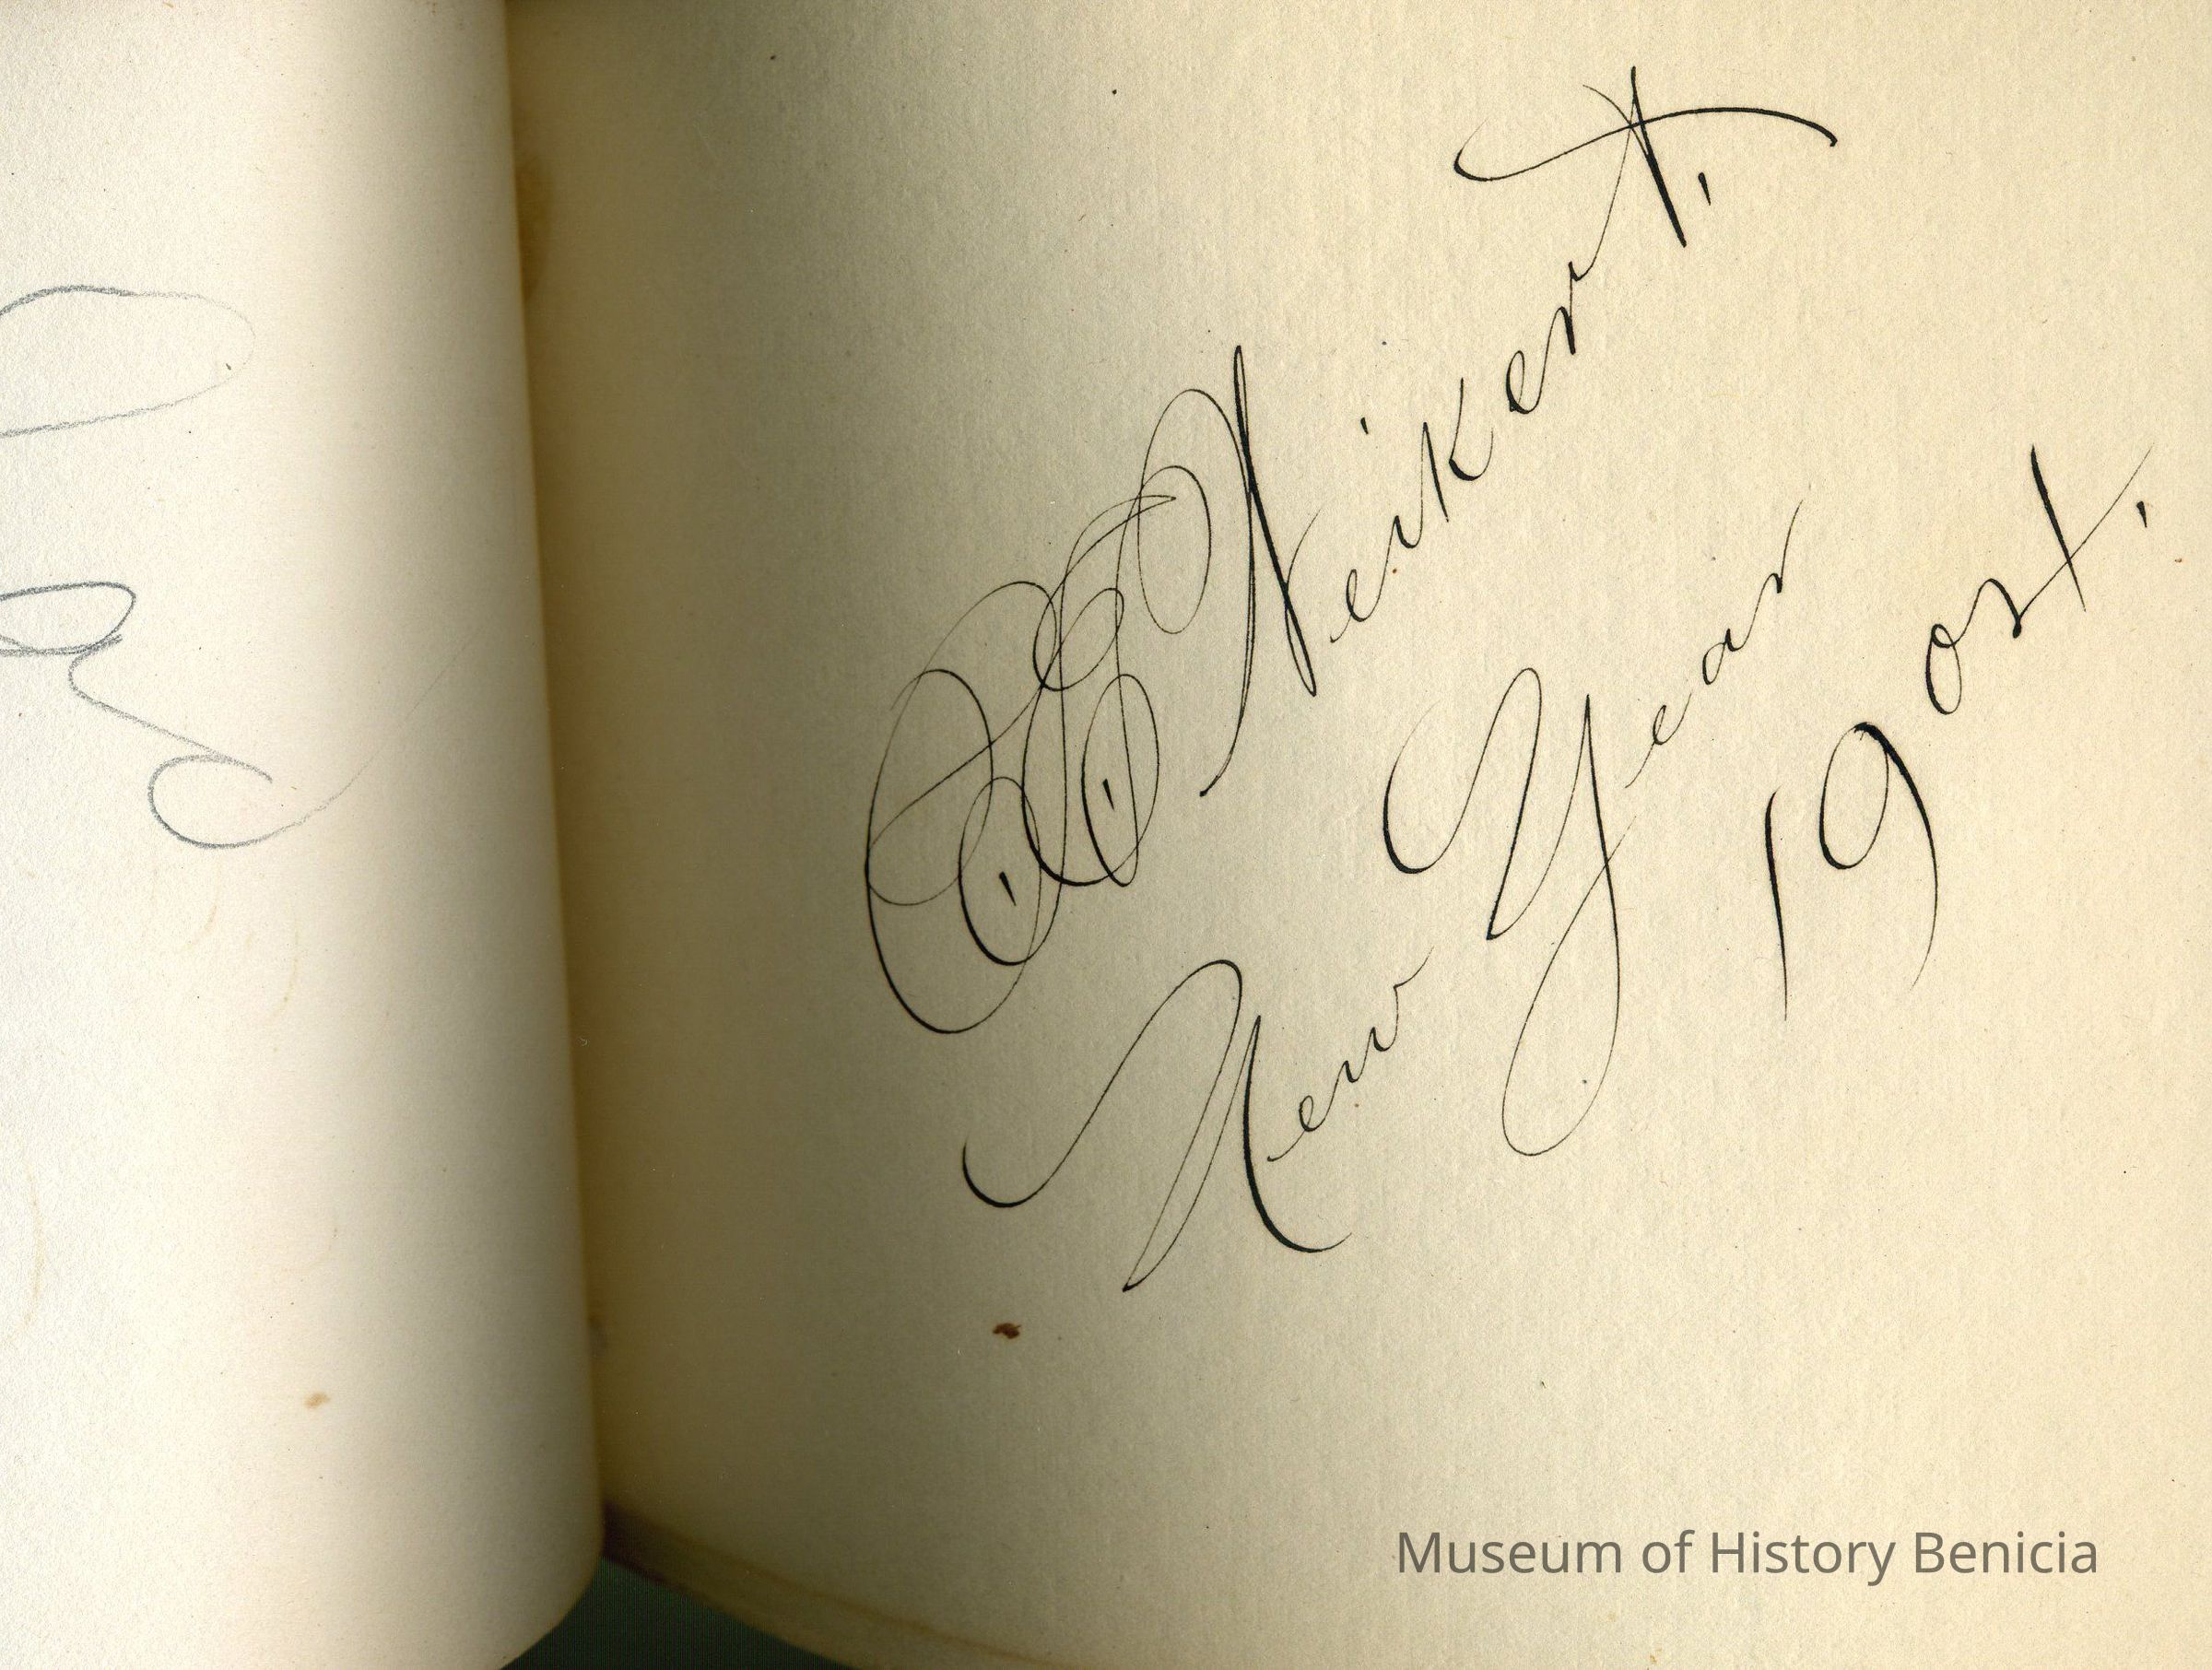 Neikert.
New Year
1904.
Museum of History Benicia